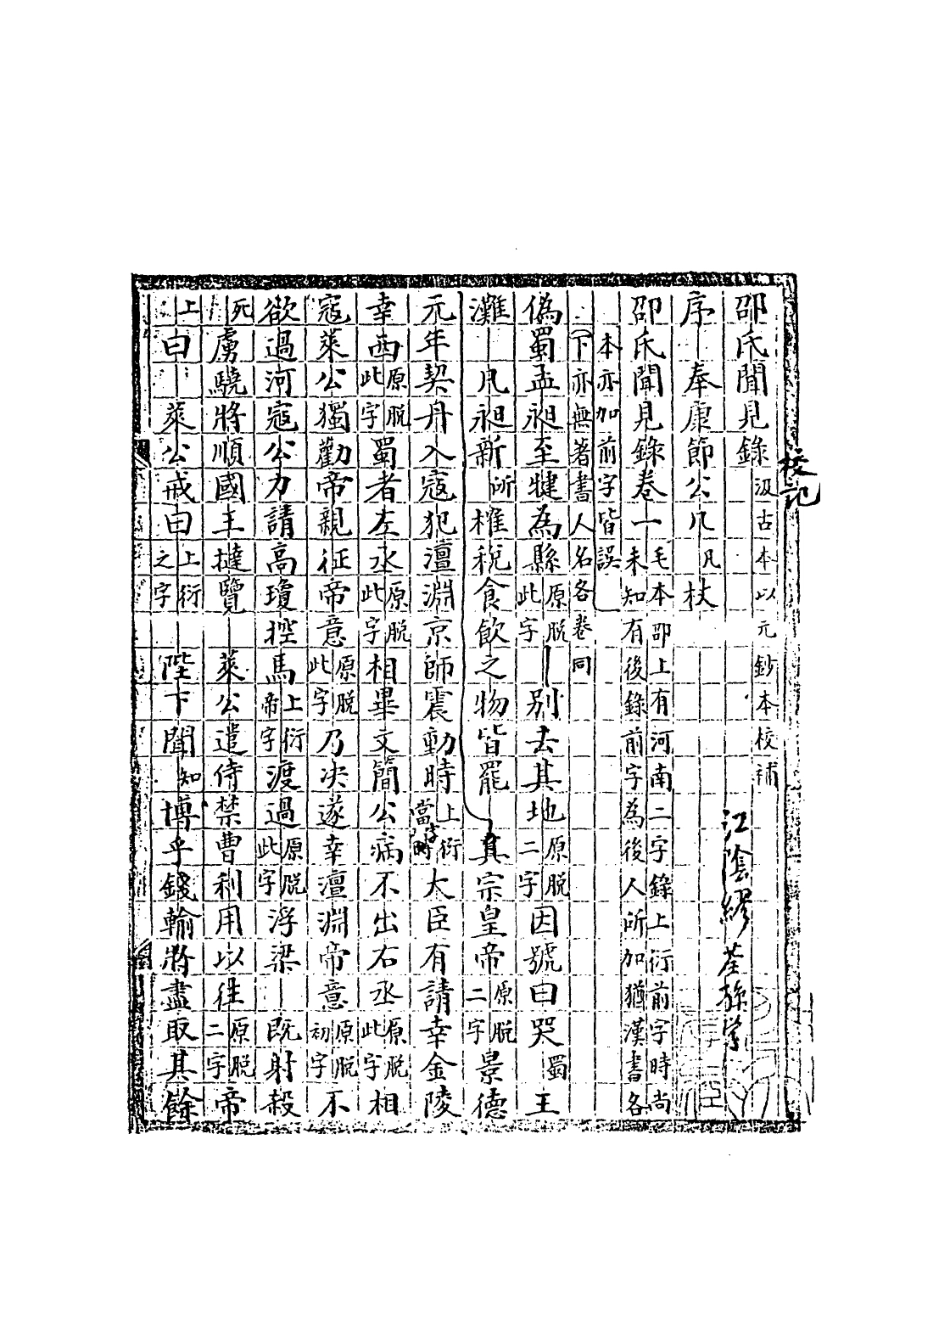 校記
邵氏聞見錄 汲古本以元鈔本校補 江陰繆荃孫學
序 奉康節公几凡杖
邵氏聞見錄卷一 毛本邵上有河南二字錄上衍前字時尚
未知有後錄前字為後人所加猶漢書各
本亦加前字皆誤
下亦無著書人名各卷同
偽蜀孟昶至犍為縣原脫此字 別去其地原脫二字因號曰哭蜀王
灘 凡昶新所榷稅食飲之物皆罷 真宗皇帝原脫二字景德
元年契丹入寇犯澶淵京師震動時上衍當時字大臣有請幸金陵
幸西原脫此字蜀者左丞原脫此字相畢文簡公病不出右丞原脫此字相
寇萊公獨勸帝親征帝意原脫此字乃決遂幸澶淵帝意原脫初字不
欲過河寇公力請高瓊控馬上衍帝字渡過原脫此字浮梁 既射殺
死虜驍將順國王撻覽 萊公遣侍禁曹利用以往原脫二字帝
上曰 萊公戒曰上衍之字 陛下聞知博乎錢輸將盡取其餘